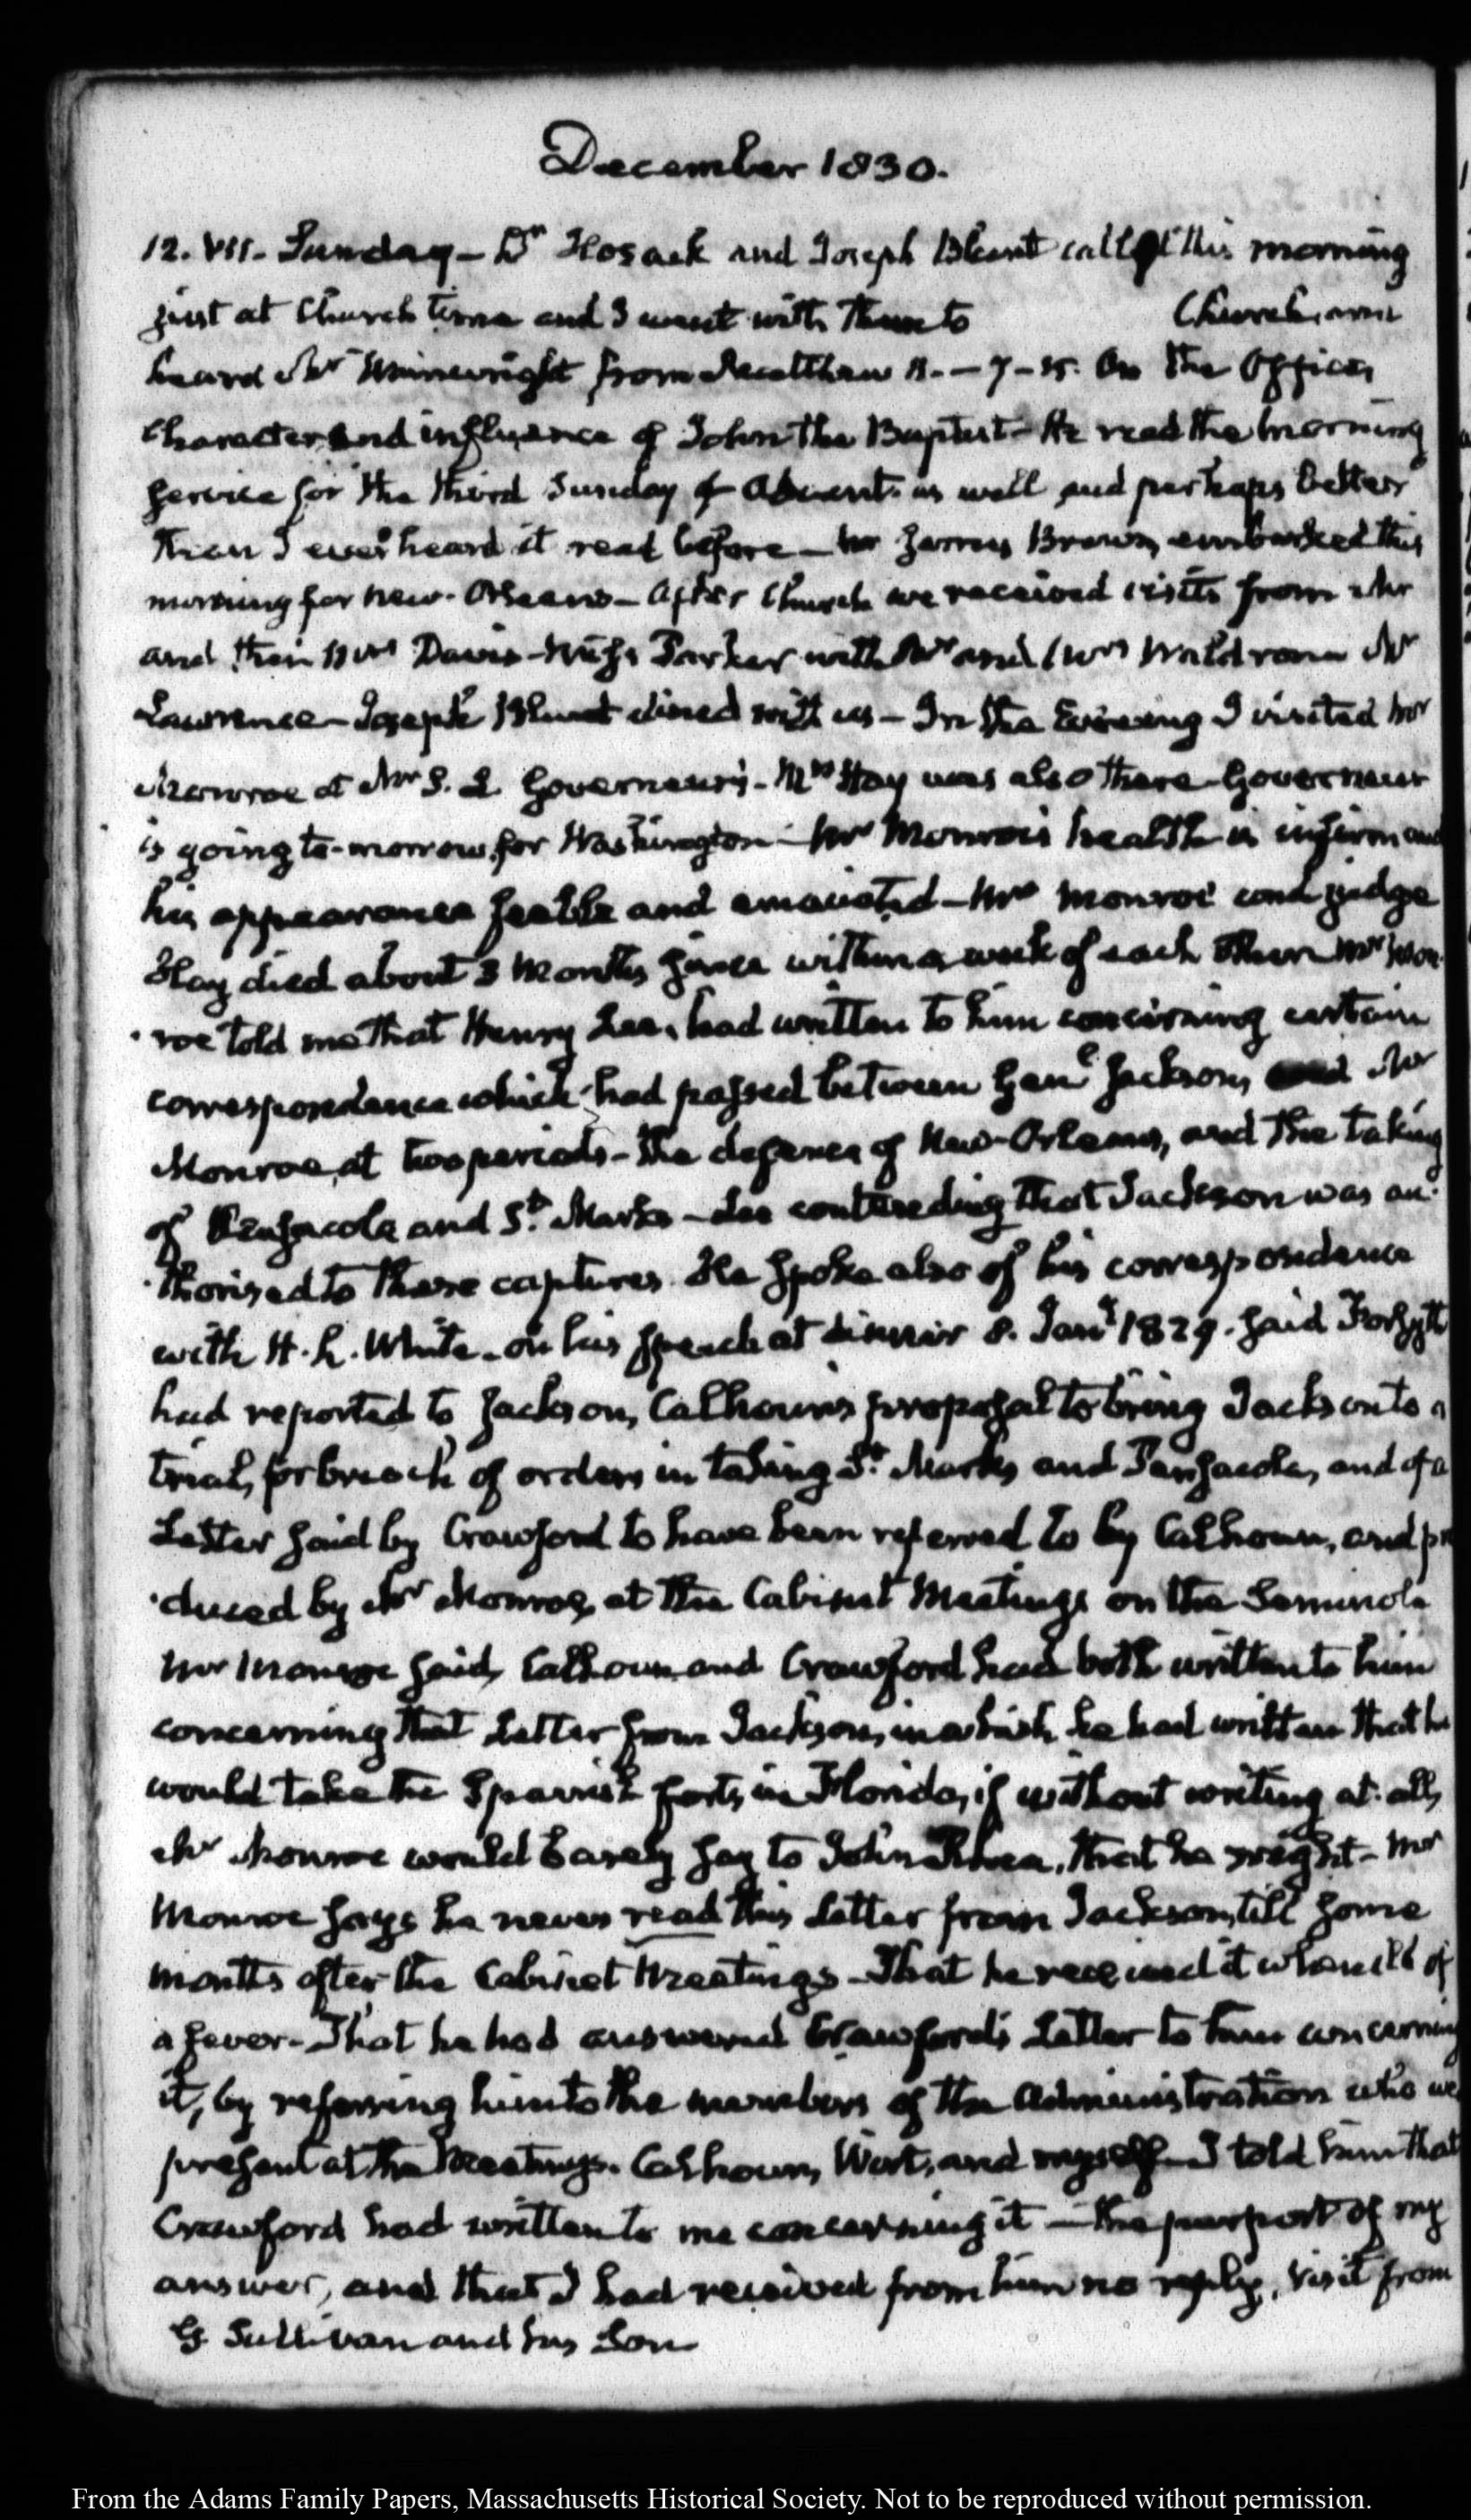 December 1830.
12. VII. Sunday – Dr. Hosack and Joseph Blunt called this morning
just at Church time and I went with them to Church, and
heard Mr Wainwright from Matthew 11. – 7 – 15. On the Office,
Character and influence of John the Baptist – He read the morning
service for the third Sunday of Advent as well and perhaps better
than I ever heard it read before – Mr James Brown, embarked this
morning for New-Orleans – After Church we received visits from Mr
and then Mrs Davis – Miss Parker with Mr and Mrs Waldron Mr
Lawrence – Joseph Blunt dined with us – In the Evening I visited Mr
Monroe at Mr S. L Governeur's – Mrs Hay was also there – Governeur
is going to-morrow for Washington – Mr Monroe's health is infirm and
his appearance feeble and emaciated – Mrs Monroe and judge
Hay died about 3 Months since within a week of each other Mr Mon-
-roe told me that Henry Lee, had written to him concerning certain
correspondence which had passed between Genl Jackson, and Mr
Monroe, at two periods – the defence of New-Orleans, and the taking
of Pensacola and St. Marks – Lee contending that Jackson was au-
-thorised to those captures. He spoke also of his correspondence
with H. L. White – on his speech at dinner 8. Jany 1827. said Forsyth
had reported to Jackson, Calhoun's proposal to bring Jackson to a
trial, for breach of orders in taking St. Marks and Pensacola, and of a
Letter said by Crawford to have been referred to by Calhoun, and pro
-duced by Mr Monroe, at the Cabinet Meetings on the Seminole
Mr Monroe said, Calhoun and Crawford had both written to him
concerning that Letter from Jackson, in which he had written that he
would take the Spanish forts in Florida, if without writing at all,
Mr Monroe would barely say to John Rhea, that he might – Mr
Monroe says he never read this Letter from Jackson, till some
months after the Cabinet Meetings – That he received it when ill of
a fever – That he had answered Crawford's Letter to him concerning
it, by referring him to the members of the Administration who were
present at the Meetings. Calhoun, Wirt, and myself – I told him that
Crawford had written to me concerning it – the purport of my
answer, and that I had received from him no reply. Visit from
G. Sullivan and his Son
From the Adams Family Papers, Massachusetts Historical Society. Not to be reproduced without permission.